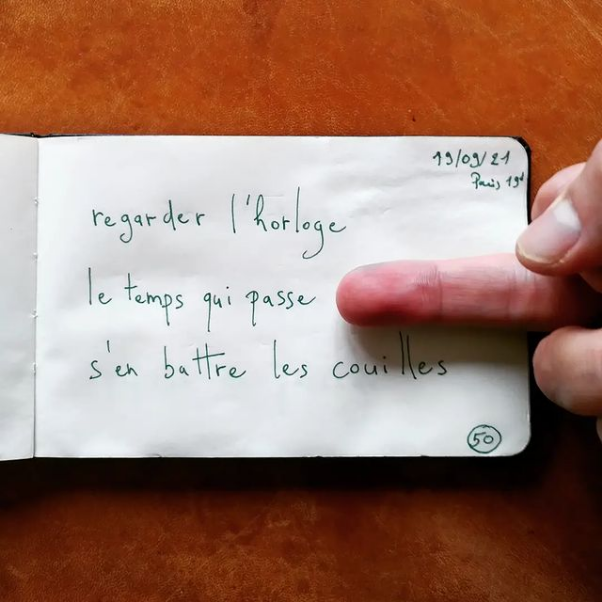 19/09/21
Paris 19e
regarder l'horloge
le temps qui passe
s'en battre les couilles
50